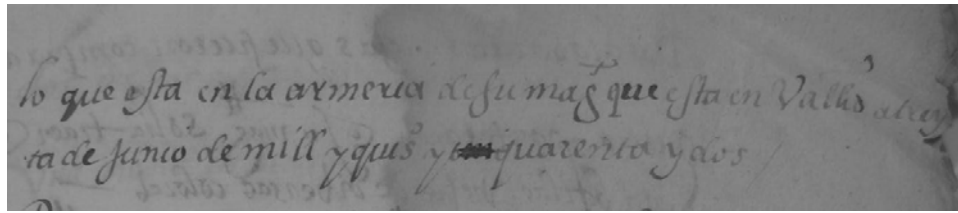 lo que esta en la armeria de su mag que esta en Vallid a trey
ta de junio de mill y quis y quarenta y dos